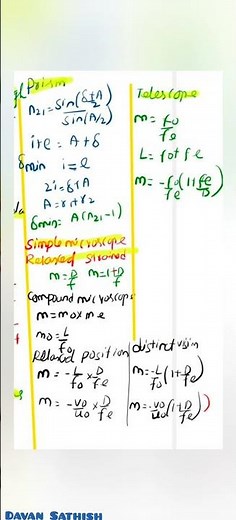 Prism
n₂₁ = sin(δ+A/2)/sin(A/2)
i+e = A+δ
δmin i=e
2i=δ+A
A=r₁+r₂
δmin= A(n₂₁-1)
Simple microscope
Relaxed strained
m=D/f m=1+D/f
Compound microscope
m=mo x me
mo=L/fo
Relaxed position
m=-L/fo x D/fe
m=-vo/uo x D/fe
distinct vision
m=-L/fo(1+D/fe)
m=-vo/uo(1+D/fe)
Telescope
m=fo/fe
L=fo+fe
m=-fo/fe(1+fe/D)
DAVAN SATHISH